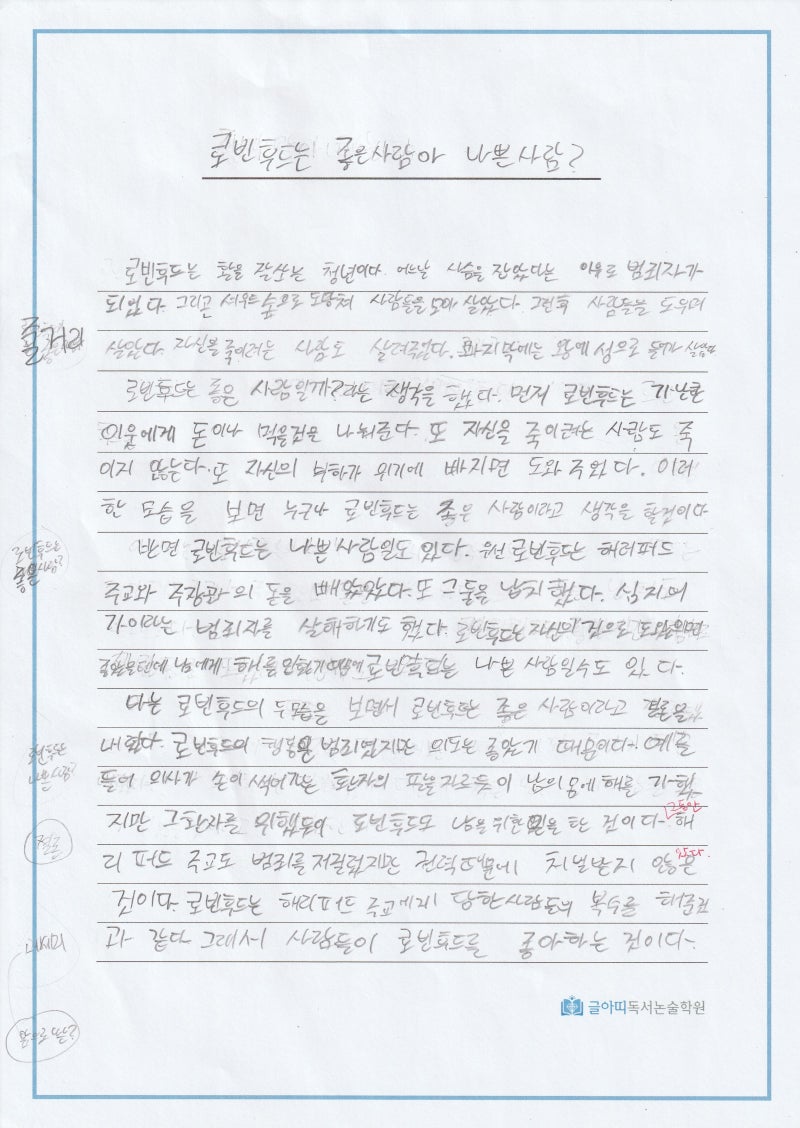 로빈후드는 좋은사람아 나쁜사람?
로빈후드는 활을 잘쏘는 청년이다. 어느날 사슴을 잡았다는 이유로 범죄자가
되었다. 그리고 셔우드숲으로 도망쳐 사람들을 모아 살았다. 그런후 사람들을 도우며
줄거리
살았다. 자신을 죽이려는 사람도 살려주었다. 마지막에는 왕에 성으로 들어가
로빈후드는 좋은 사람일까?라는 생각을 했다. 먼저 로빈후드는 가난한
이웃에게 돈이나 먹을것을 나눠준다. 또 자신을 죽이려는 사람도 죽
이지 않는다. 또 자신의 부하가 위기에 빠지면 도와주었다. 이러
한 모습을 보면 누구나 로빈후드는 좋은 사람이라고 생각을 할것이다
로빈후드는
좋은사람?
반면 로빈후드는 나쁜사람일도 있다. 우선 로빈후드는 해리퍼드
주교와 의 돈을 빼앗았다. 또 그들을 납치했다. 심지어
가이라는 범죄자를 살해하기도 했다. 로빈후드는 자신의
남에게 해를 때문에 로빈후드는 나쁜 사람일수도 있다.
나는 로빈후드의 두모습을 보면서 로빈후드는 좋은 사람이라고 결론을
로빈후드는
나쁜사람?
내렸다. 로빈후드의 행동은 범죄였지만 의도는 좋았기 때문이다. 예를
들어 의사가 손이 썩어가는 환자의 팔을 자르듯이 남의 몸에 해를 가했
지만 그환자를 위했듯이 로빈후드도 남을 위한일을 한 것이다. 그동안 해
결론
리 퍼드 주교도 범죄를 저질렀지만 권력때문에 처벌받지 않은
것이다. 로빈후드는 해리퍼드 주교에게 당한사람들의 복수를 해준것
과 같다 그래서 사람들이 로빈후드를 좋아하는 것이다.
글아띠독서논술학원